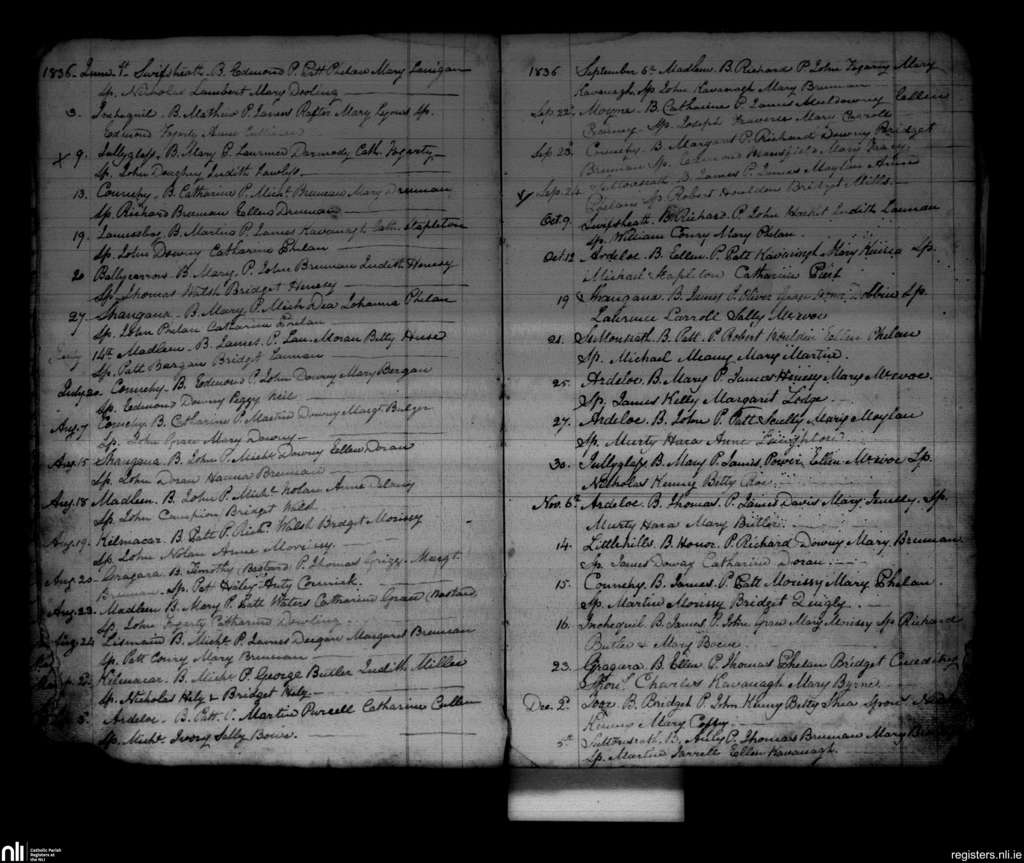 1836. June 4th Swifsheath. B. Edmond P. Patt Phelan Mary Lanigan
Sp. Nicholas Lambert Mary Dooling
3. Inchequil. B. Mathew P. James Rafter Mary Lyons Sp.
Edmond Fogarty Anne
X 9. Tullyglass. B. Mary P. Laurence Darmody Cath. Fogarty
Sp. John Doughny Judith Lawless
13. Connehy. B. Catharine P. Michl Brennan Mary Drennan
Sp. Richard Brennan Ellen Drennan
19. Jamesbog. B. Martin P. James Kavanagh Cath. Stapleton
Sp. John Downy Catharine Phelan
20 Ballycarron B. Mary. P. John Brennan Judith Henesy
Sp. Thomas Walsh Bridget Henesy
27. Shangana. B. Mary. P. Mich Dea Johanna Phelan
Sp. John Phelan Catharine Phelan
July 14th Madlem. B. James. P. Lau. Moran Betty
Sp. Patt Bergan Bridget Lannan
July 20 Connehy. B. Edmond P. John Downy Mary Bergan
Sp. Edmond Downy Peggy Neil
Aug. 7 Connehy. B. Catharine P. Martin Downy Margt Bulger
Sp. John Grace Mary Downy
Aug. 15 Shangana. B. John P. Michl Downy Ellen Doran
Sp. John Doran Hanna Brennan
Aug. 18 Madlem. B. John P. Michl Nolan Anne Delany
Sp. John Campion Bridget Walsh
Aug. 19. Kilmacar. B. Patt P. Richd. Walsh Bridget Morissy
Sp. John Nolan Anne Morissy
Aug. 20. Gragara. B. Timothy (Bastard P. Thomas Grigg. Margt.
Brennan. Sp. Pat Haily Cormick.
Aug. 23. Madlem B. Mary P. Patt Waters Catharine Grace (Bastard
Sp. John Fogarty Catharine Dowling
Aug. 24 Lismain B. Michl P. James Deegan Margaret Brennan
Sp. Patt Conry Mary Brennan
2d. Kilmacar. B. Michl P. George Butler Judith Millea
Sp. Nicholas Hely & Bridget Hely
5. Ardeloe. B. Patt. P. Martin Purcell Catharine Cullen
Sp. Michl. Ivory Sally Bowe.
1836 September 6th Madlem. B. Richard P. John Fogarty Mary
Kavanagh Sp John Kavanagh Mary Brennan
Sep. 22 Moyne. B Catharine P. James Muldowny Ellen
Sp. Joseph Traverse Mary Carroll
Sep. 23. Connehy. B. Margaret P. Richard Downy Bridget
Brennan Sp. Edmond Mansfield Mary Tracy
X Sep. 24 Suttonsrath B. James P. James Moylan Anne
Phelan Sp Robert Houldon Bridget Mills
Oct. 9. Swifsheath. B. Richard. P. John Hackit Judith Lannan
Sp. William Conry Mary Phelan
Oct. 12 Ardeloe. B. Ellen. P. Patt Kavanagh Mary Sp.
Michael Stapleton Catharine
19 Shangana. B. James P. Oliver Sp.
Laurence Carroll Sally McEvoe
21. Suttonsrath. B. Patt. P. Robert Houldin Ellen Phelan
Sp. Michael Meany Mary Martin.
25. Ardeloe. B. Mary P. James Henessy Mary McEvoe.
Sp. James Kelly Margaret Lodge.
27. Ardeloe. B. John P. Patt Scully Mary Moylan
Sp. Murty Hara Anne
30. Tullyglass B. Mary P. James Power Ellen McEvoe Sp.
Nicholas Kenny Betty
Nov. 6th Ardeloe. B. Thomas P. James Davis Mary Sp.
Murty Hara Mary Butler
14. Littlehills. B. Honor. P. Richard Downy Mary Brennan
Sp. James Catharine Doran
15. Connehy. B. James. P. Patt Morissy Mary Phelan
Sp. Martin Morissy Bridget Quigly
16. Inchequil B. James P. John Grace Mary Morissy Sp Richard
Butler & Mary Bowe
23. Gragara. B. Ellen P. Thomas Phelan Bridget
Spons. Charles Kavanagh Mary Byrne
Dec. 2d. B. Bridget P. John Kenny Betty Shea Spons
Kenny Mary Coffy
5th Suttonsrath. B. P. Thomas Brennan Mary
Sp. Martin Farrell Ellen Kavanagh.
nli Catholic Parish
Registers at
the NLI
registers.nli.ie